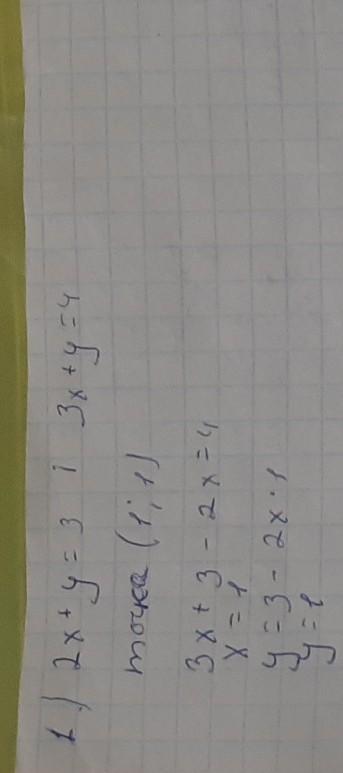 1) 2x + y = 3 і 3x + y = 4
точка (1; 1)
3x + 3 - 2x = 4
x = 1
y = 3 - 2x · 1
y = 1